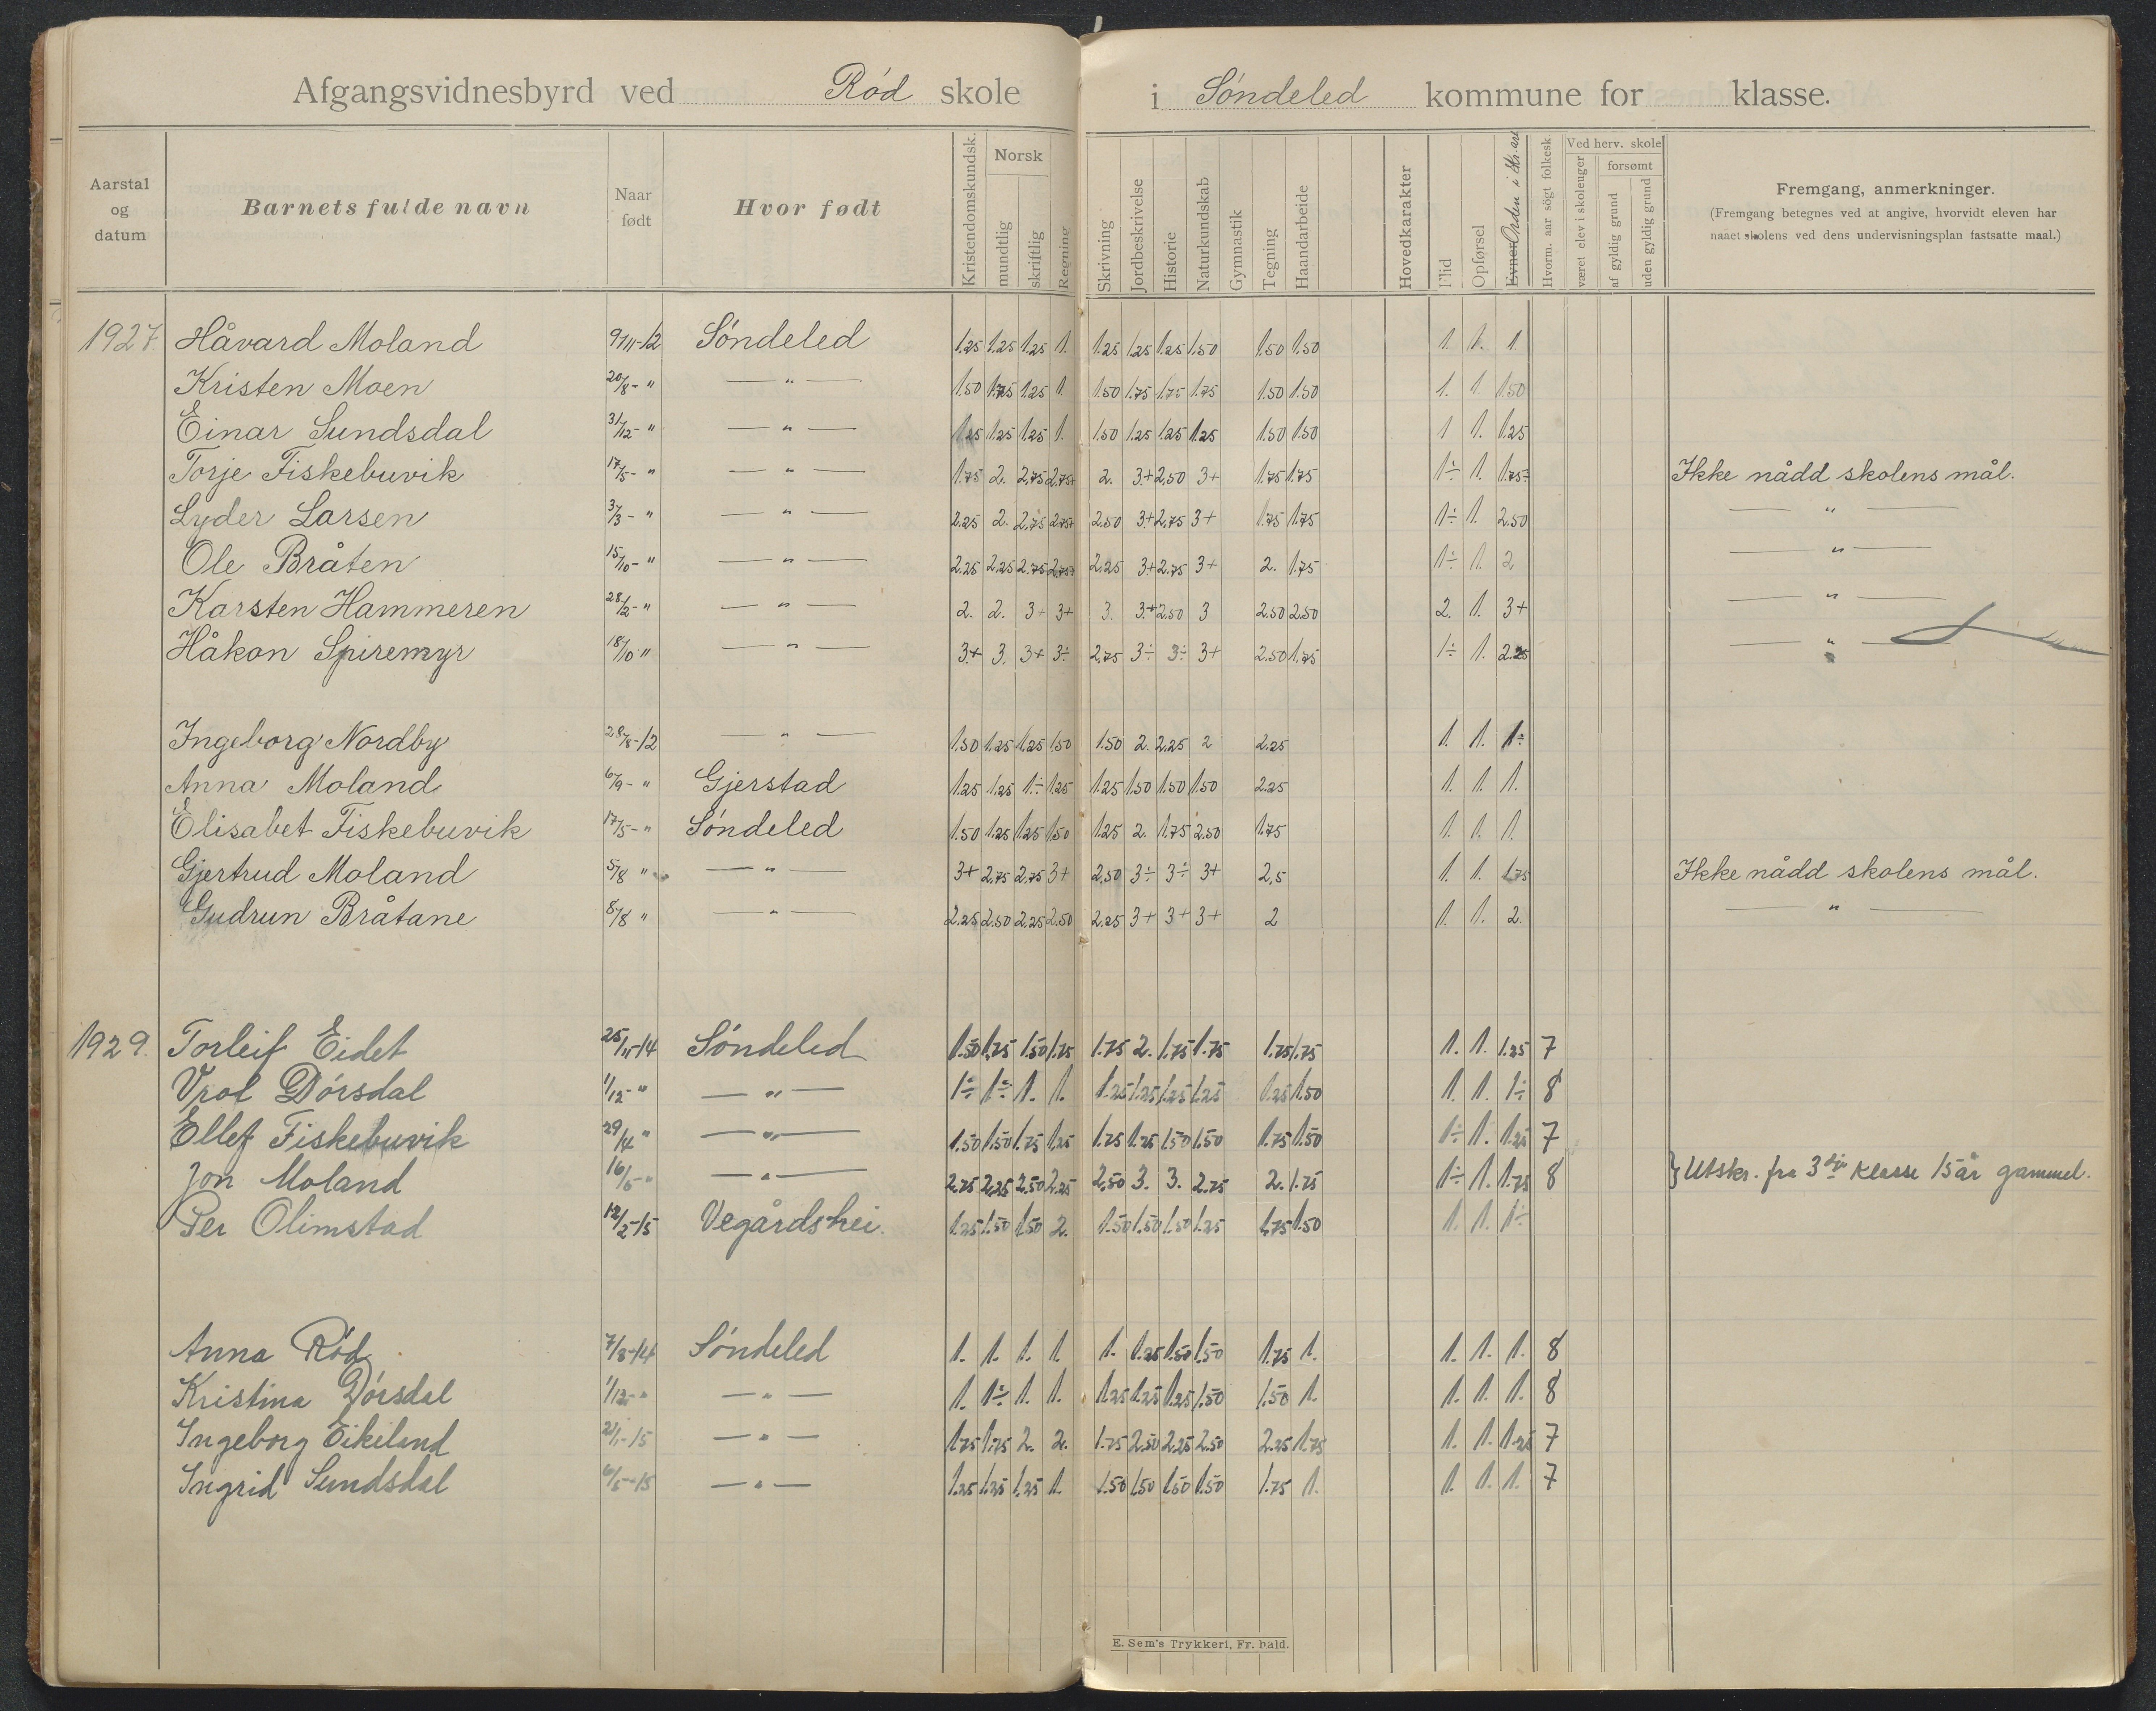 Afgangsvidnesbyrd ved Rød skole i Søndeled kommune for klasse.
Aarstal og datum
Barnets fulde navn
Naar født
Hvor født
Kristendomskundsk.
Norsk
mundtlig
skriftlig
Regning
Skrivning
Jordbeskrivelse
Historie
Naturkundskab
Gymnastik
Tegning
Haandarbeide
Hovedkarakter
Flid
Opførsel
Evner Orden i
Hvorm. aar søgt folkesk
Ved herv. skole
været elev i skoleuger
forsømt
af gyldig grund
uden gyldig grund
Fremgang, anmerkninger.
(Fremgang betegnes ved at angive, hvorvidt eleven har
naaet skolens ved dens undervisningsplan fastsatte maal.)
1927 Håvard Moland 9/11-12 Søndeled 1.25 1.25 1.25 1. 1.25 1.25 1.25 1.50 1.50 1.50 1. 1. 1.
Kristen Moen 20/8- " — " — 1.50 1.75 1.25 1 1.50 1.75 1.75 1.75 1.50 1.50 1. 1 1.50
Einar Sundsdal 31/12- " — " — 1.25 1.25 1.25 1. 1.50 1.25 1.25 1.25 1.50 1.50 1 1. 1.25
Torje Fiskebuvik 17/5- " — " — 1.75 2. 2.75 2.75+ 2. 3+ 2.50 3+ 1.75 1.75 1÷ 1. 1.75÷ Ikke nådd skolens mål.
Lyder Larsen 3/3- " — " — 2.25 2. 2.75 2.75+ 2.50 3+ 2.75 3+ 1.75 1.75 1÷ 1. 2.50 — " —
Ole Bråten 15/10- " — " — 2.25 2.25 2.75 2.75+ 2.25 3+ 2.75 3+ 2. 1.75 1÷ 1. 2 — " —
Karsten Hammeren 28/2- " — " — 2. 2. 3+ 3+ 3. 3+ 2.50 3 2.50 2.50 2. 1. 3+ — " —
Håkon Spiremyr 18/10 " — " — 3+ 3. 3+ 3÷ 2.75 3÷ 3÷ 3+ 2.50 1.75 1÷ 1. 2.25 — " —
Ingeborg Nordby 28/8-12 — " — 1.50 1.25 1.25 1.50 1.50 2. 2.25 2 2.25 1. 1. 1÷
Anna Moland 6/9- " Gjerstad 1.25 1.25 1÷ 1.25 1.25 1.50 1.50 1.50 2.25 1. 1. 1.
Elisabet Fiskebuvik 17/5- " Søndeled 1.50 1.25 1.25 1.50 1.25 2. 1.75 2.50 1.75 1. 1. 1.
Gjertrud Moland 5/8 " — " — 3+ 2.75 2.75 3+ 2.50 3÷ 3÷ 3+ 2,5 1. 1. 1.75 Ikke nådd skolens mål.
Gudrun Bråtane 8/8 " — " — 2.25 2.50 2.25 2.50 2.25 3+ 3+ 3+ 2 1. 1. 2. — " —
1929. Torleif Eidet 25/11-14 Søndeled 1.50 1.75 1.50 1.25 1.75 2. 1.75 1.75 1.75 1.75 1. 1. 1.25 7
Vrol Dørsdal 1/12- " — " — 1÷ 1÷ 1. 1. 1.25 1.25 1.25 1.25 1.25 1.50 1. 1. 1÷ 8
Ellef Fiskebuvik 29/4 " — " — 1.50 1.50 1.75 1.25 1.75 1.25 1.50 1.50 1.75 1.50 1÷ 1. 1.25 7
Jon Moland 16/5- " — " — 2.75 2.25 2.50 2.25 2.50 3. 3. 2.75 2. 1.75 1÷ 1. 1.75 8 } Utskr. fra 3dje klasse 15 år gammel.
Per Olimstad 12/2-15 Vegårdshei. 1.25 1.50 1.50 2. 1.50 1.50 1.50 1.25 1.75 1.50 1. 1. 1÷
Anna Rød 7/8-14 Søndeled 1. 1. 1. 1. 1. 1.25 1.50 1.50 1.75 1. 1. 1. 1. 8
Kristina Dørsdal 1/12- " — " — 1. 1÷ 1. 1. 1.25 1.25 1.25 1.50 1.50 1. 1. 1. 1. 8
Ingeborg Eikeland 21/1-15 — " — 1.75 1.75 2. 2. 1.75 2.50 2.25 2.50 2.25 1.75 1. 1. 1.25 7
Ingrid Sundsdal 6/5-15 — " — 1.25 1.25 1.25 1. 1.50 1.50 1.50 1.50 1.75 1. 1. 1. 1. 7
E. Sem's Trykkeri, Fr. hald.